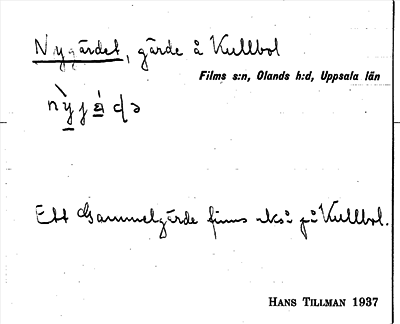 Nygärdet, gärde å Kullbol
Films s:n, Olands h:d, Uppsala län
nỳjá̱ɖə
Ett Gammelgärde finns också på Kullbol.
HANS TILLMAN 1937